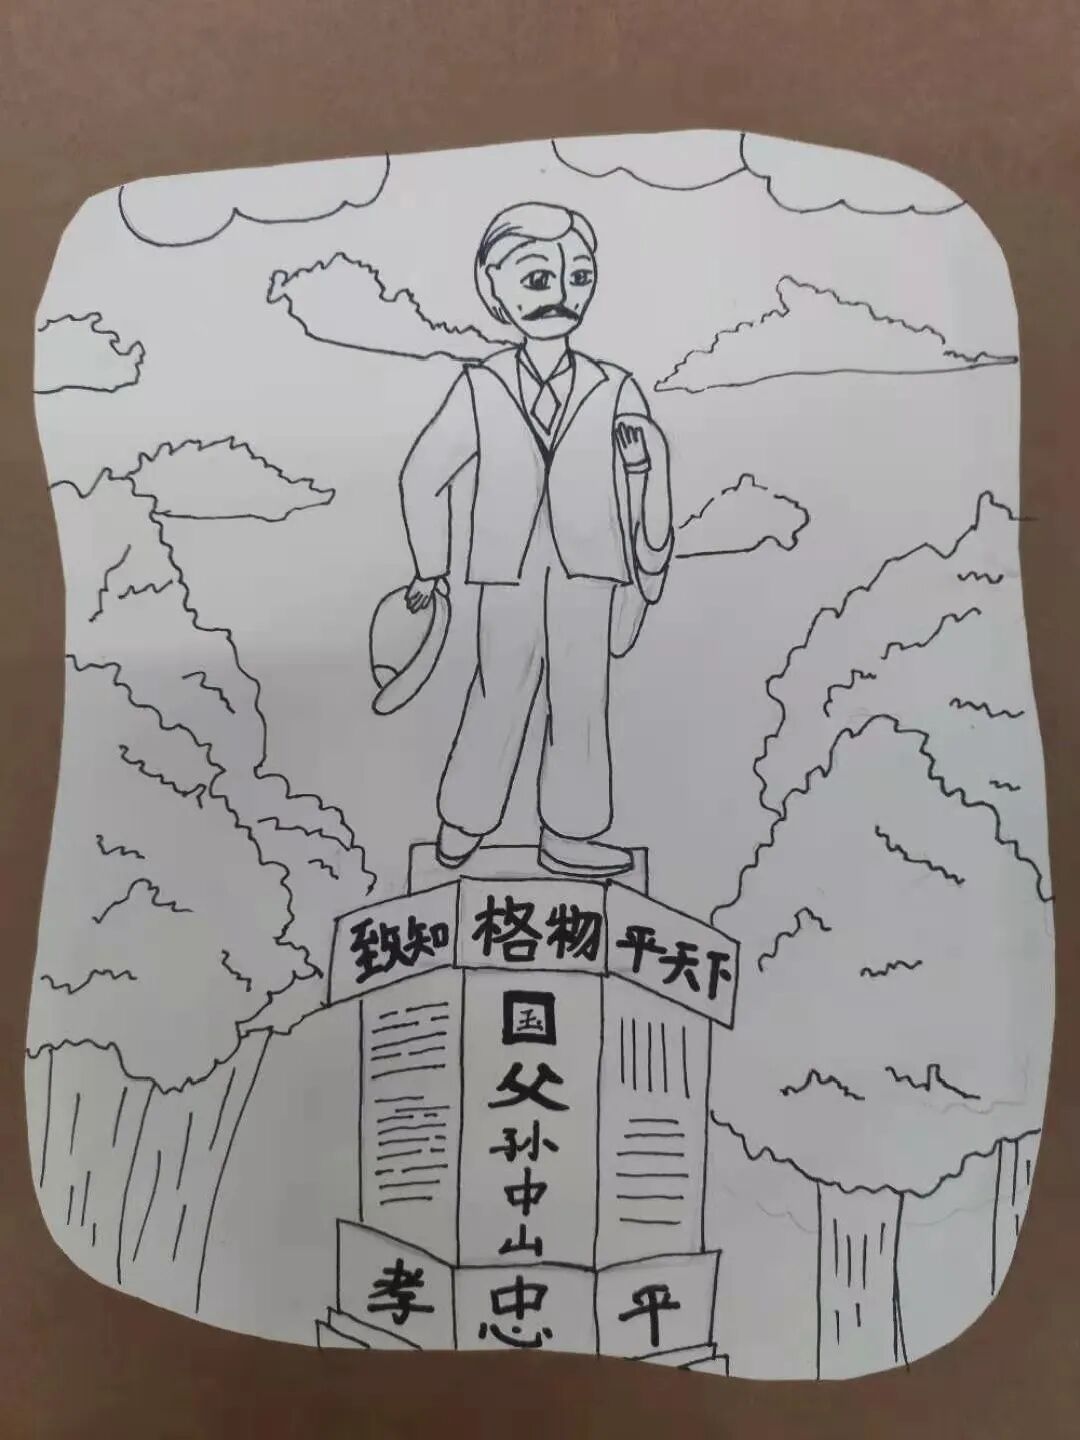 致知 格物 平天下
国
父
孙
中
山
孝 忠 平